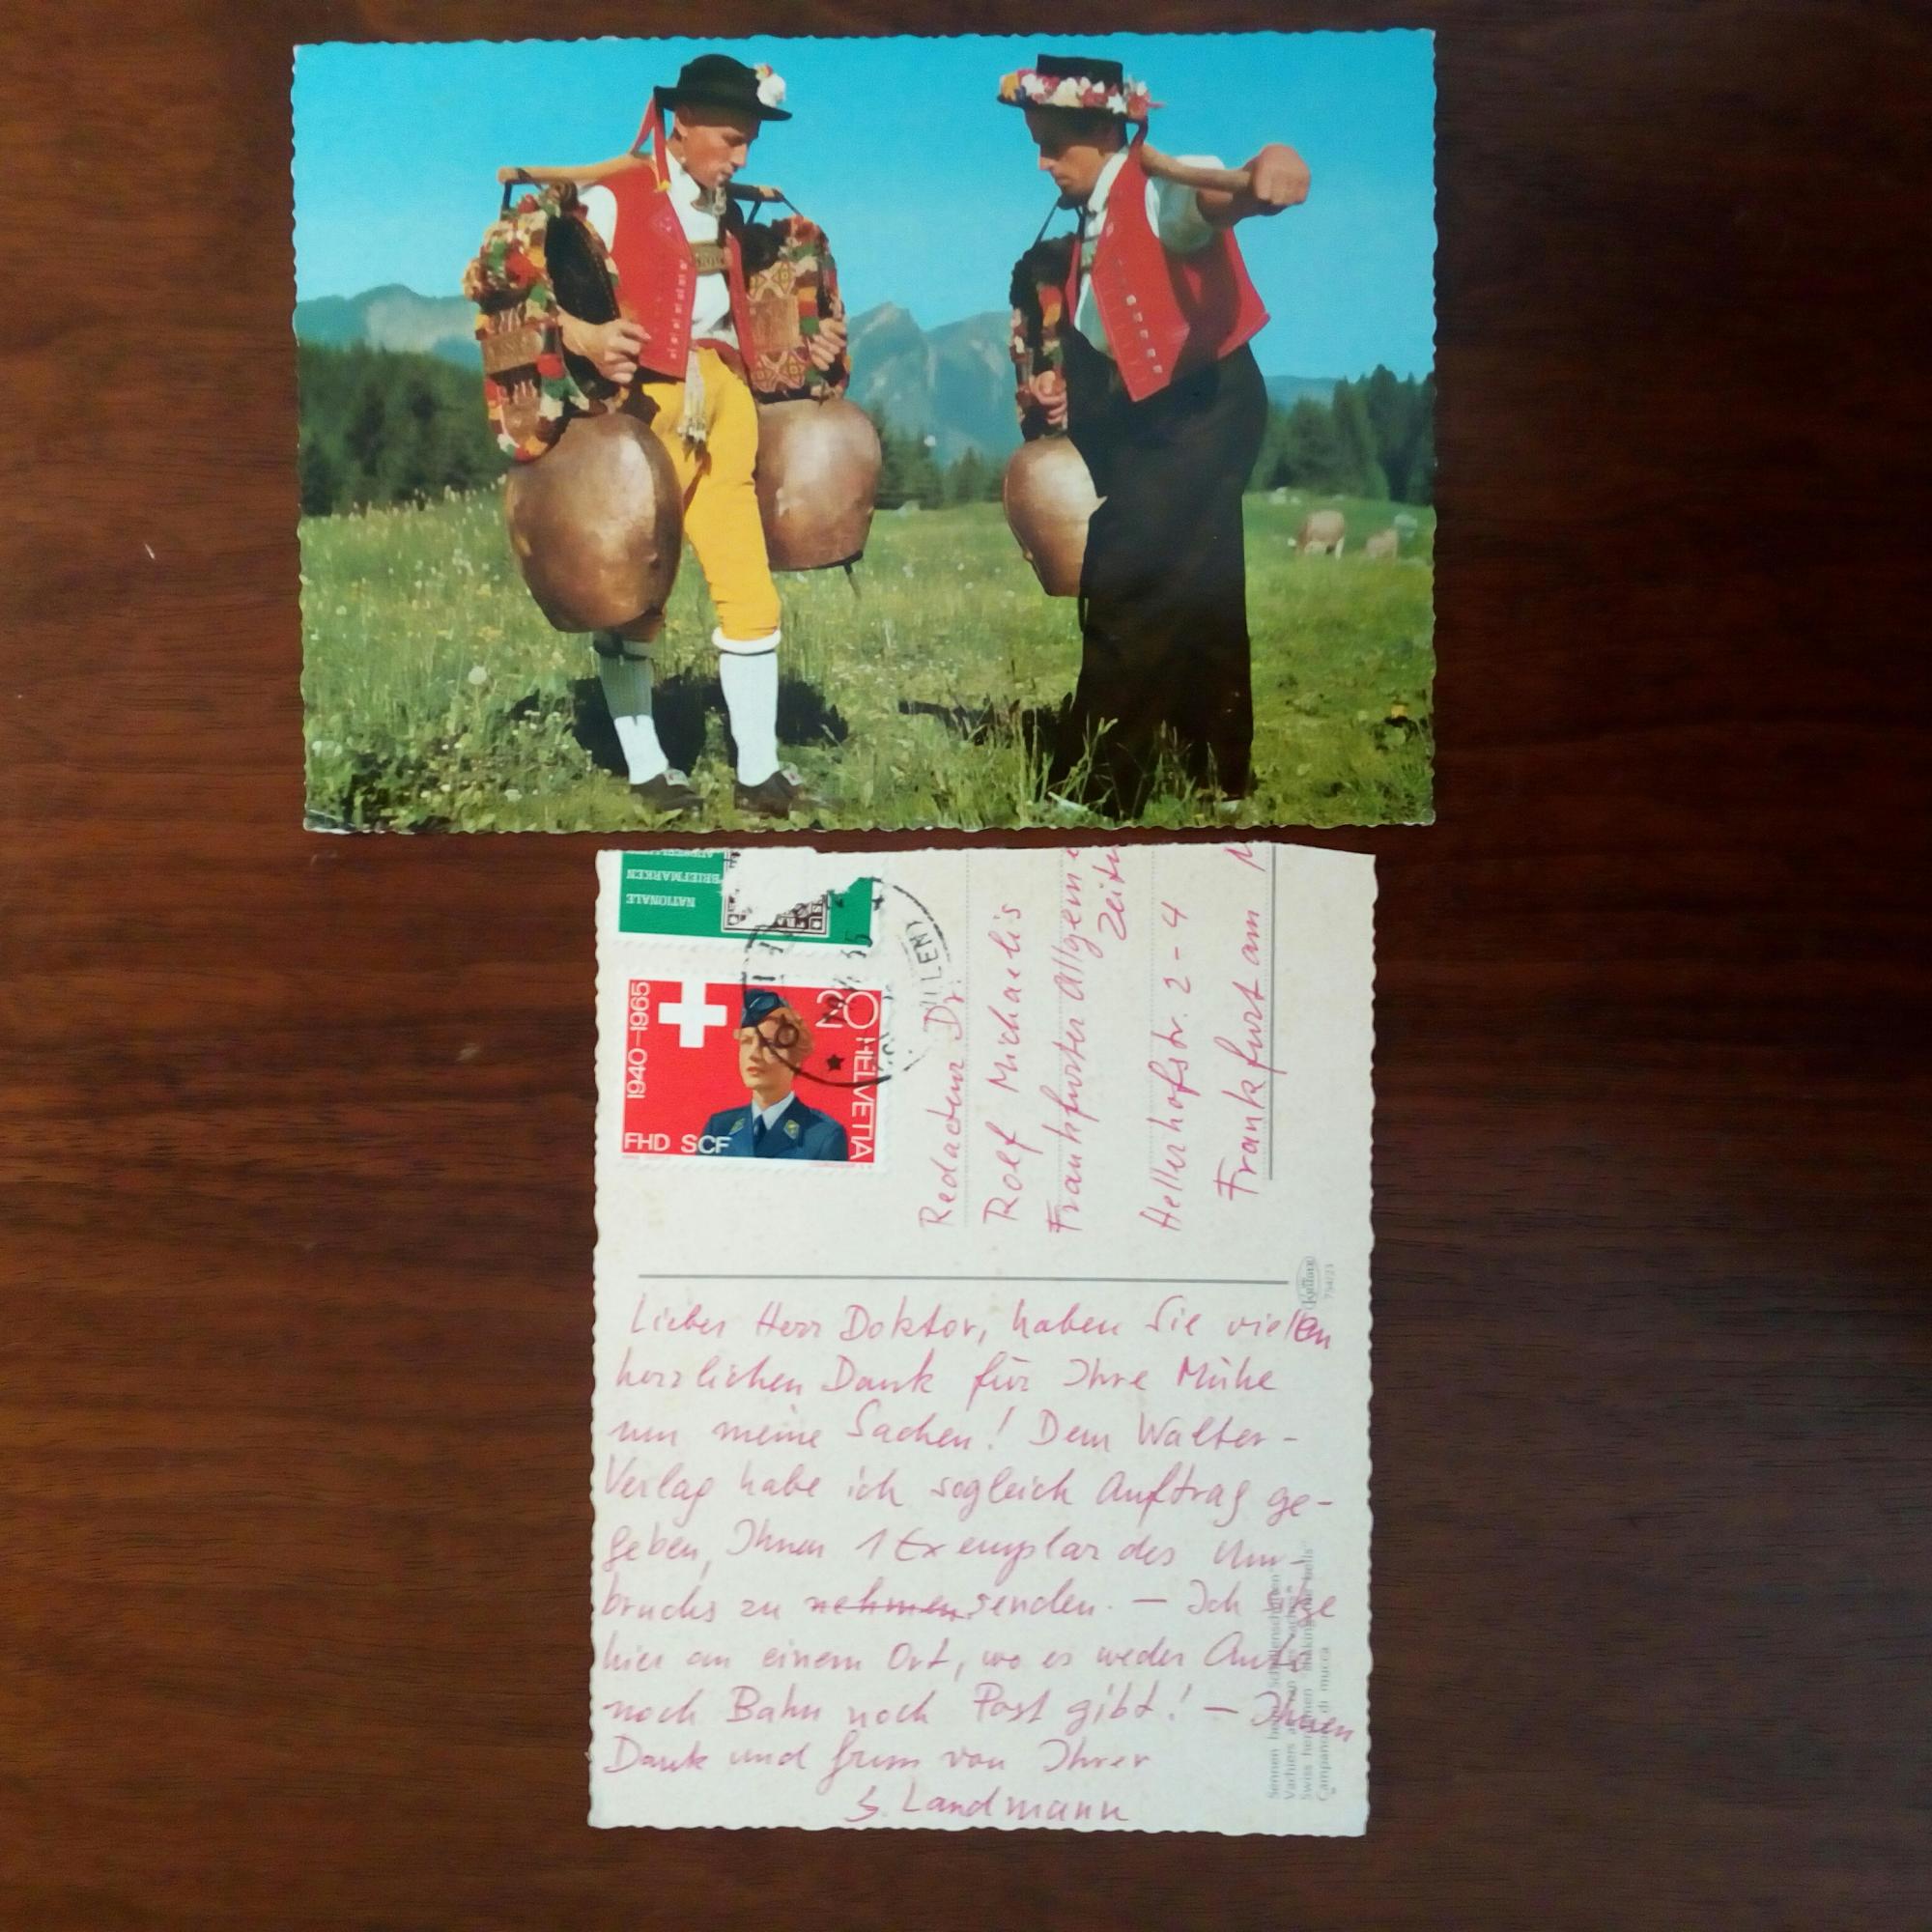 NATIONALE
BRIEFMARKEN
1940–1965
20
HELVETIA
FHD SCF
Redacteur Dr.
Rolf Michaelis
Frankfurter Allgem
Zeitu
Hellerhofstr. 2-4
Frankfurt am
Krüger
Lieber Herr Doktor, haben Sie vielen
herzlichen Dank für Ihre Mühe
um meine Sachen! Dem Walter-
Verlag habe ich sogleich Auftrag ge-
geben, Ihnen 1 Exemplar des Um-
bruchs zu nehmen senden. – Ich sitze
hier an einem Ort, wo es weder Auto
noch Bahn noch Post gibt! – Ihnen
Dank und Gruss von Ihrer
S. Landmann
Sennen beim
Vachers
Swiss
Campanacci di mucca